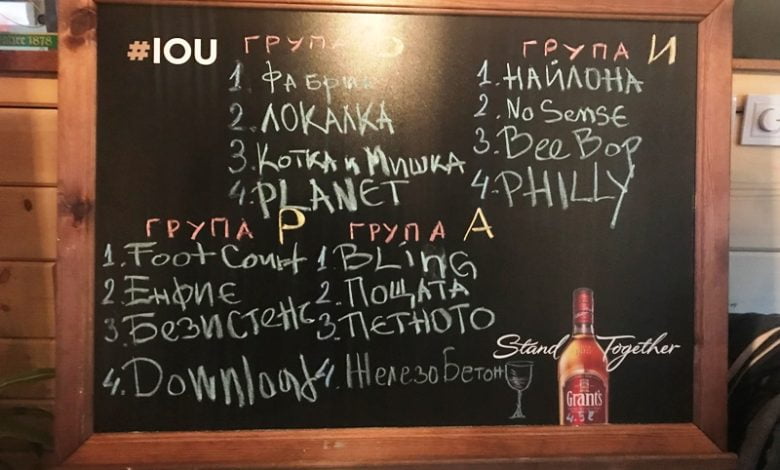 #IOU
ГРУПА
1. Фабрик
2. ЛОКАЛКА
3. Котка и Мишка
4. PLANET
ГРУПА И
1. НАЙЛОНА
2. No SENSE
3. Bee Bop
4. PHILLY
ГРУПА Р
1. Foot Court
2. Енфие
3. Безистенс
4. Download
ГРУПА А
1. BLING
2. ПОЩАТА
3. ПЕТНОТО
4. ЖелезоБетон
Stand Together
Grant's
4.5